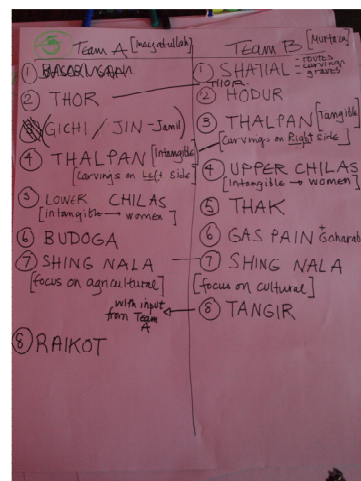 Team A [Inayatullah]
① BASORINGAH
② THOR
GICHI / JIN - Jamil
④ THALPAN [Intangible]
[Carvings on Left Side]
⑤ LOWER CHILAS
[intangible → women]
⑥ BUDOGA
⑦ SHING NALA
[focus on agricultural]
⑧ RAIKOT
Team B [Murtaza]
① SHATIAL - routes
- carvings
- graves
THOR
② HODUR
③ THALPAN [Tangible]
[Carvings on Right Side]
④ UPPER CHILAS
[Intangible → women]
⑤ THAK
⑥ GAS PAIN + Goharabad
⑦ SHING NALA
[focus on cultural]
⑧ TANGIR
with input
from Team
A